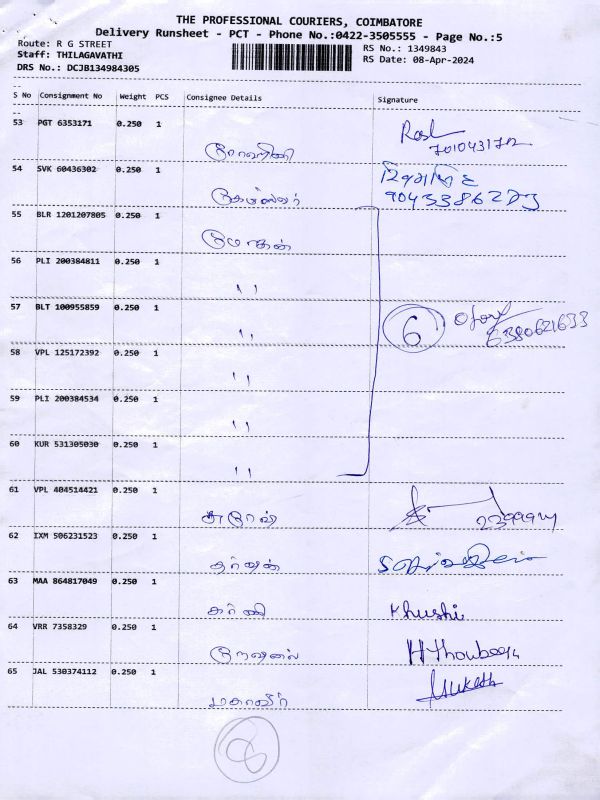 THE PROFESSIONAL COURIERS, COIMBATORE
Delivery Runsheet - PCT - Phone No.:0422-3505555 - Page No.:5
Route: R G STREET
RS No.: 1349843
Staff: THILAGAVATHI
RS Date: 08-Apr-2024
DRS No.: DCJB134984305
S No Consignment No Weight PCS Consignee Details Signature
53 PGT 6353171 0.250 1
54 SVK 60436302 0.250 1
55 BLR 1201207805 0.250 1 மோகன்
56 PLI 200384811 0.250 1 ''
57 BLT 100955859 0.250 1 '' 6 6380621633
58 VPL 125172392 0.250 1 ''
59 PLI 200384534 0.250 1 ''
60 KUR 531305030 0.250 1 ''
61 VPL 404514421 0.250 1
62 IXM 506231523 0.250 1
63 MAA 864817049 0.250 1 Khushi
64 VRR 7358329 0.250 1
65 JAL 530374112 0.250 1 மகாவீர் Mukesh
8